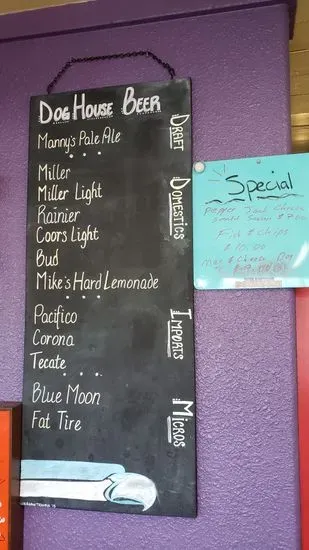 Dog House Beer
Manny's Pale Ale
Draft
Miller
Miller Light
Rainier
Coors Light
Bud
Mike's Hard Lemonade
Domestics
Pacifico
Corona
Tecate
Imports
Blue Moon
Fat Tire
Micros
Special
Pepper Jack Cheese
Fish & Chips
Mac & Cheese Dog